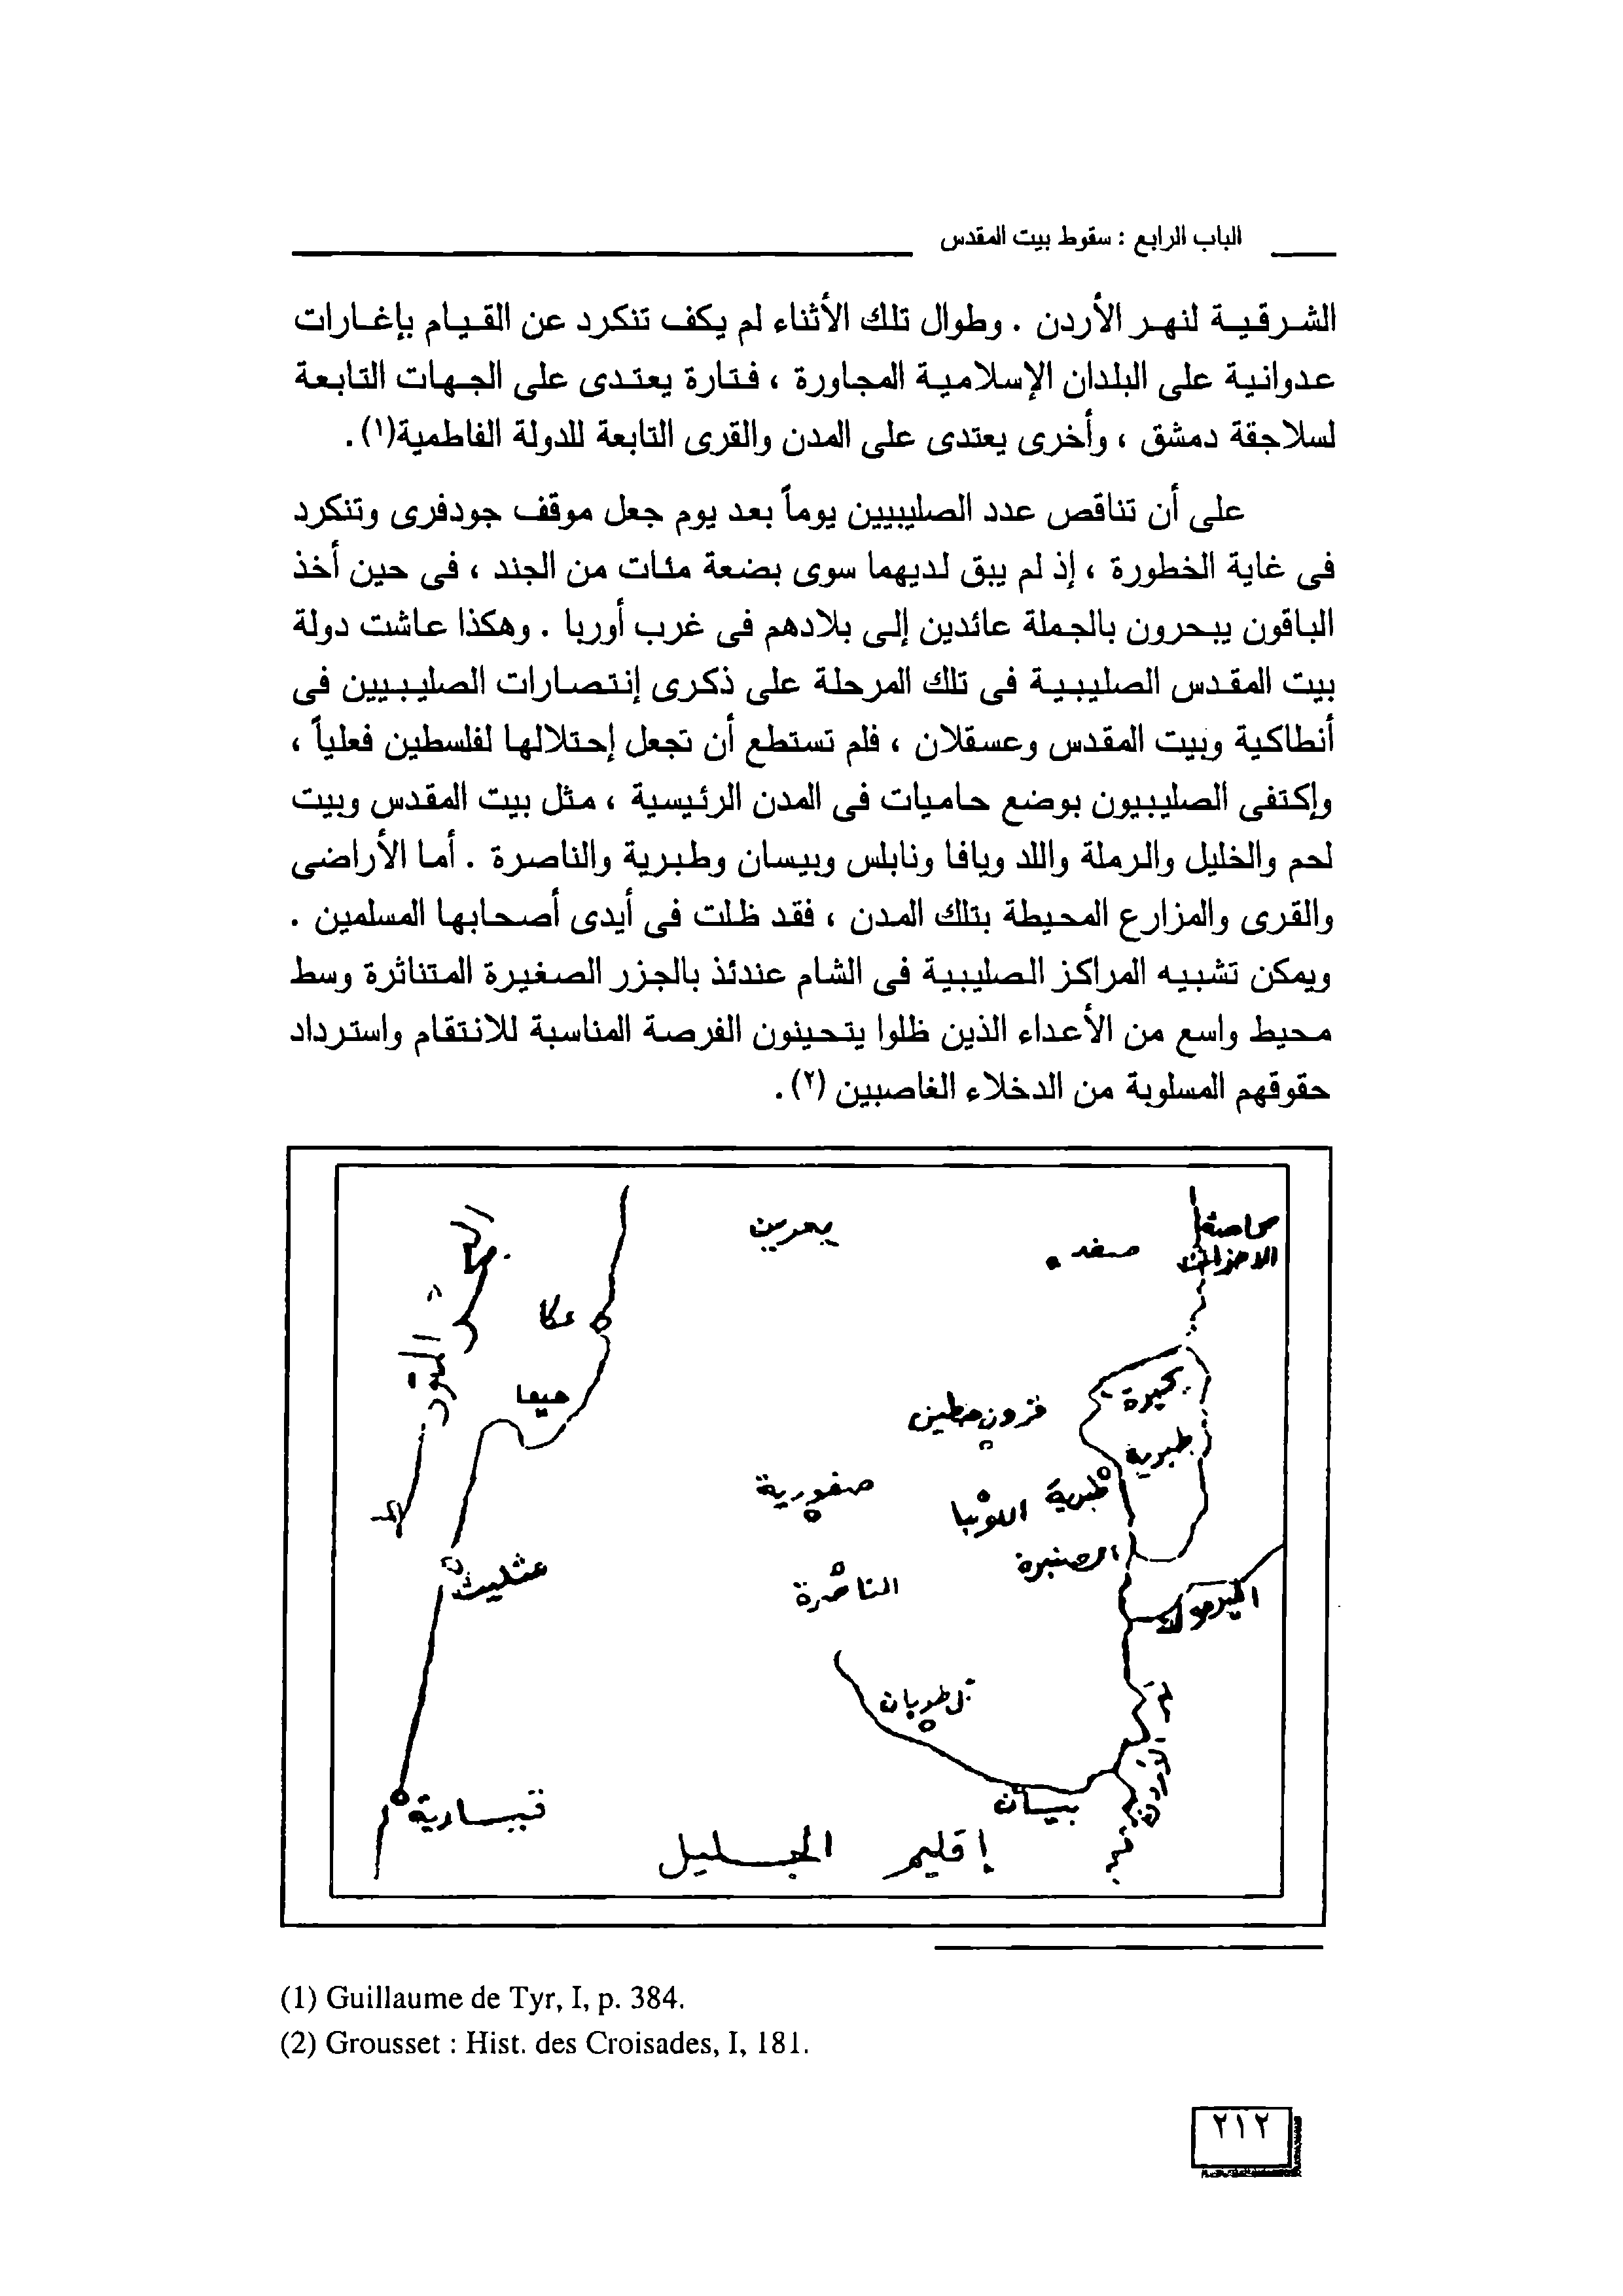 الباب الرابع : سقوط بيت المقدس
الشرقية لنهر الأردن . وطوال تلك الأثناء لم يكف تنكرد عن القيام بإغارات
عدوانية على البلدان الإسلامية المجاورة ، فتارة يعتدى على الجهات التابعة
لسلاجقة دمشق ، وأخرى يعتدى على المدن والقرى التابعة للدولة الفاطمية(١) .
على أن تناقص عدد الصليبيين يوماً بعد يوم جعل موقف جودفرى وتنكرد
فى غاية الخطورة ، إذ لم يبق لديهما سوى بضعة مئات من الجند ، فى حين أخذ
الباقون يبحرون بالجملة عائدين إلى بلادهم فى غرب أوربا . وهكذا عاشت دولة
بيت المقدس الصليبية فى تلك المرحلة على ذكرى إنتصارات الصليبيين فى
أنطاكية وبيت المقدس وعسقلان ، فلم تستطع أن تجعل إحتلالها لفلسطين فعلياً ،
وإكتفى الصليبيون بوضع حاميات فى المدن الرئيسية ، مثل بيت المقدس وبيت
لحم والخليل والرملة واللد ويافا ونابلس وبيسان وطبرية والناصرة . أما الأراضى
والقرى والمزارع المحيطة بتلك المدن ، فقد ظلت فى أيدى أصحابها المسلمين .
ويمكن تشبيه المراكز الصليبية فى الشام عندئذ بالجزر الصغيرة المتناثرة وسط
محيط واسع من الأعداء الذين ظلوا يتحينون الفرصة المناسبة للانتقام واسترداد
حقوقهم المسلوبة من الدخلاء الغاصبين (٢) .
صفد
عكا
حيفا
بحيرة
طبرية
قرون حطين
صفورية
طبرية
اللوبيا
الصنبرة
عثليث
الناصرة
اليرموك
نهر
الأردن
بيسان
قيسارية
إقليم الجليل
(1) Guillaume de Tyr, I, p. 384.
(2) Grousset : Hist. des Croisades, I, 181.
٢١٢